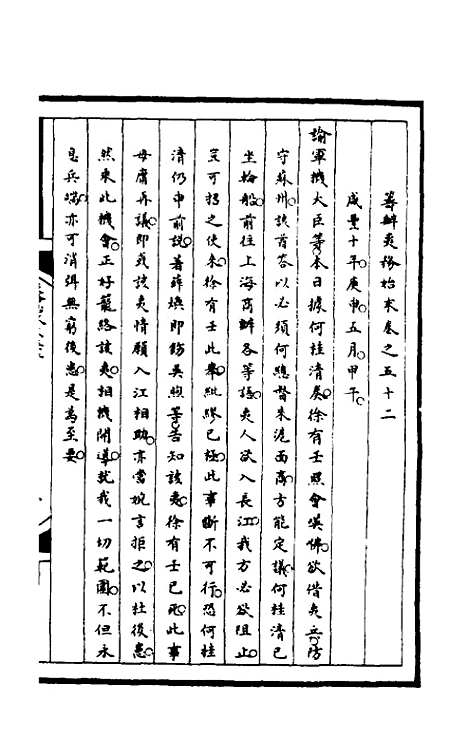 籌辦夷務始末卷之五十二
咸豐十年庚申五月甲午。
諭軍機大臣等。本日據何桂清奏。徐有壬照會嘆佛。欲借夷兵防
守蘇州。該酋答以必須何總督來滬面商。方能定議。何桂清已
坐輪船。前往上海商辦各等語。夷人欲入長江。我方必欲阻止。
豈可招之使來。徐有壬此奉紕繆已極。此事斷不可行。恐何桂
清仍申前說。著薛煥即飭吳煦等。告知該夷。徐有壬已死。此事
毋庸再議。即或該夷情願入江相助。亦當婉言拒之。以杜後患。
然乘此機會。正好籠絡該夷。相機開導。就我一切範圍。不但永
息兵端。亦可消弭無窮後患。是為至要。